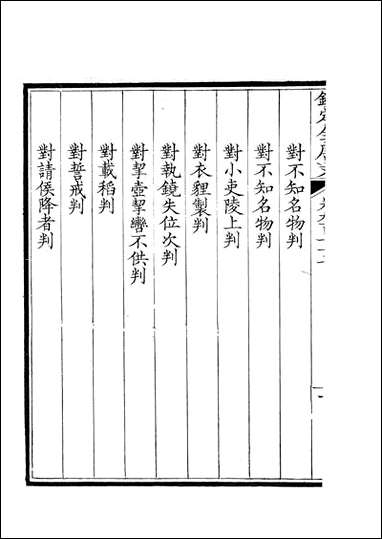 對不知名物判
對不知名物判
對小吏陵上判
對衣貍製判
對執鏡失位次判
對挈壺挈轡不供判
對載稻判
對誓戒判
對請侯降者判